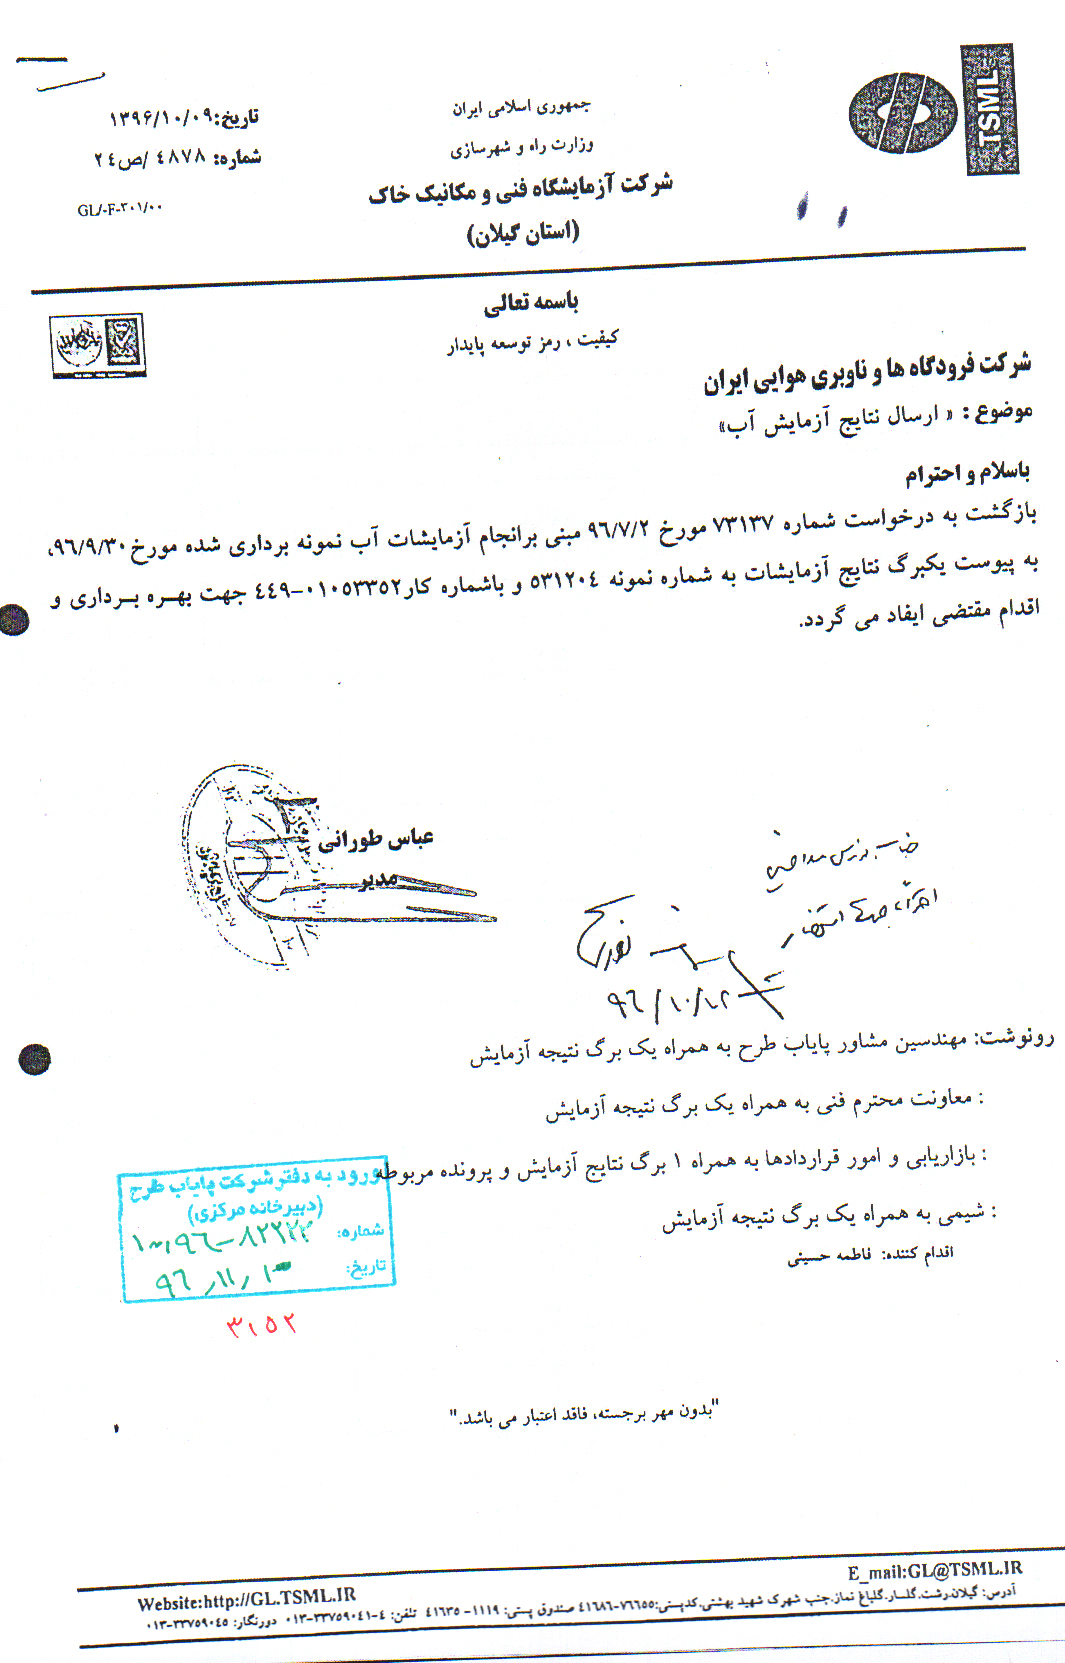 TSML
جمهوری اسلامی ایران
وزارت راه و شهرسازی
شرکت آزمایشگاه فنی و مکانیک خاک
(استان گیلان)
تاریخ: ۱۳۹۶/۱۰/۰۹
شماره: ٤٨٧٨ /ص٢٤
GL/-F-۳۰۱/۰۰
باسمه تعالی
کیفیت ، رمز توسعه پایدار
شرکت فرودگاه ها و ناوبری هوایی ایران
موضوع : « ارسال نتایج آزمایش آب»
باسلام و احترام
بازگشت به درخواست شماره ۷۳۱۳۷ مورخ ۹۶/۷/۲ مبنی برانجام آزمایشات آب نمونه برداری شده مورخ ۹۶/۹/۳۰،
به پیوست یکبرگ نتایج آزمایشات به شماره نمونه ۵۳۱۲۰٤ و باشماره کار۰۱۰۵۳۳۵۲-٤٤۹ جهت بهره برداری و
اقدام مقتضی ایفاد می گردد.
عباس طورانی
مدیر
۹٦/۱۰/۱۲
رونوشت: مهندسین مشاور پایاب طرح به همراه یک برگ نتیجه آزمایش
: معاونت محترم فنی به همراه یک برگ نتیجه آزمایش
: بازاریابی و امور قراردادها به همراه ۱ برگ نتایج آزمایش و پرونده مربوطه
: شیمی به همراه یک برگ نتیجه آزمایش
اقدام کننده: فاطمه حسینی
ورود به دفتر شرکت پایاب طرح
(دبیرخانه مرکزی)
شماره:
تاریخ:
۳۱۵۲
"بدون مهر برجسته، فاقد اعتبار می باشد."
E_mail:GL@TSML.IR
Website:http://GL.TSML.IR
آدرس: گیلان.رشت.گلسار.گلباغ نماز.جنب شهرک شهید بهشتی.کدپستی:۷۶۶۵۵-۴۱۶۸۶ صندوق پستی: ۱۱۱۹- ۴۱۶۳۵ تلفن: ۴-۳۳۷۵۹۰۴۱-۰۱۳ دورنگار: ۳۳۷۵۹۰۴۵-۰۱۳